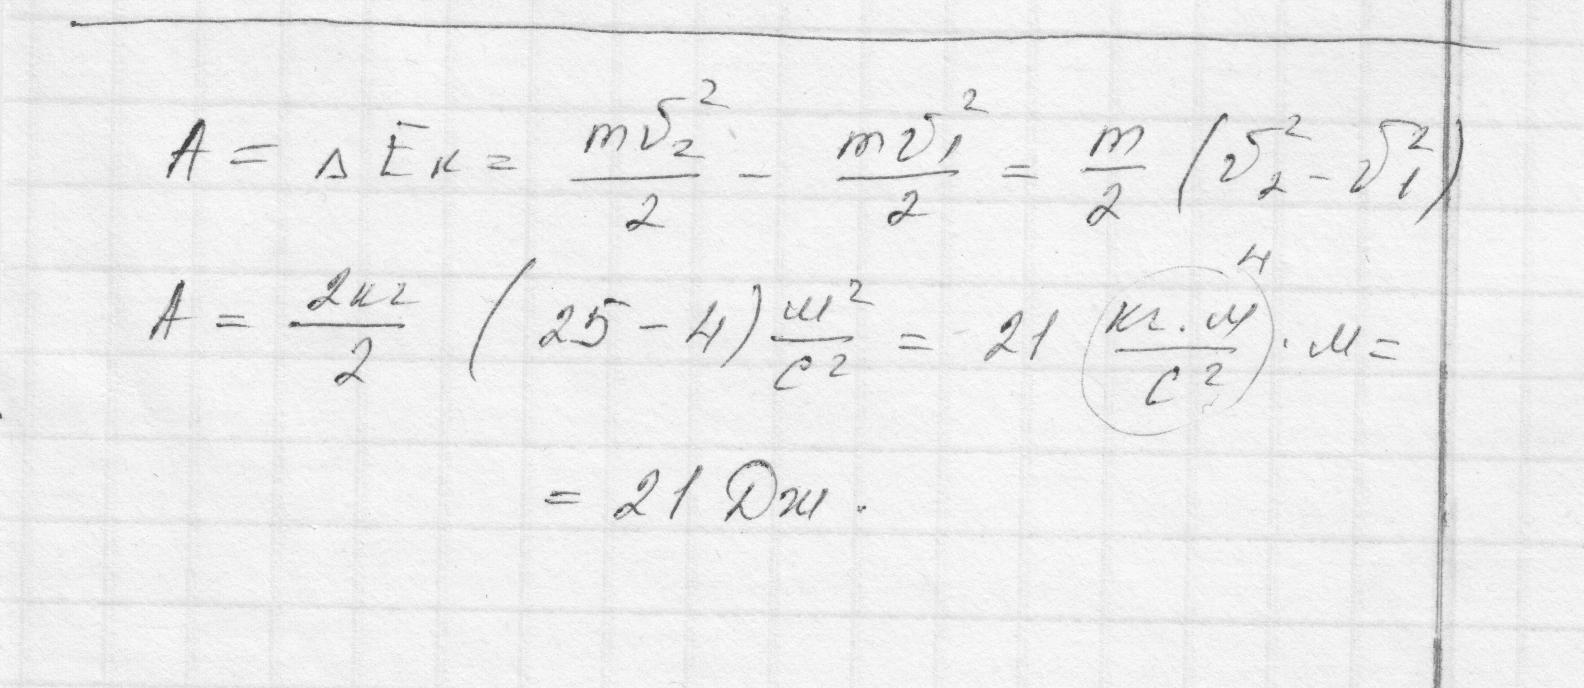 A = ΔEк = mv₂²/2 - mv₁²/2 = m/2 (v₂² - v₁²)
Н
A = 2кг/2 (25 - 4) м²/с² = 21 (кг·м/с²)·м =
= 21 Дж.